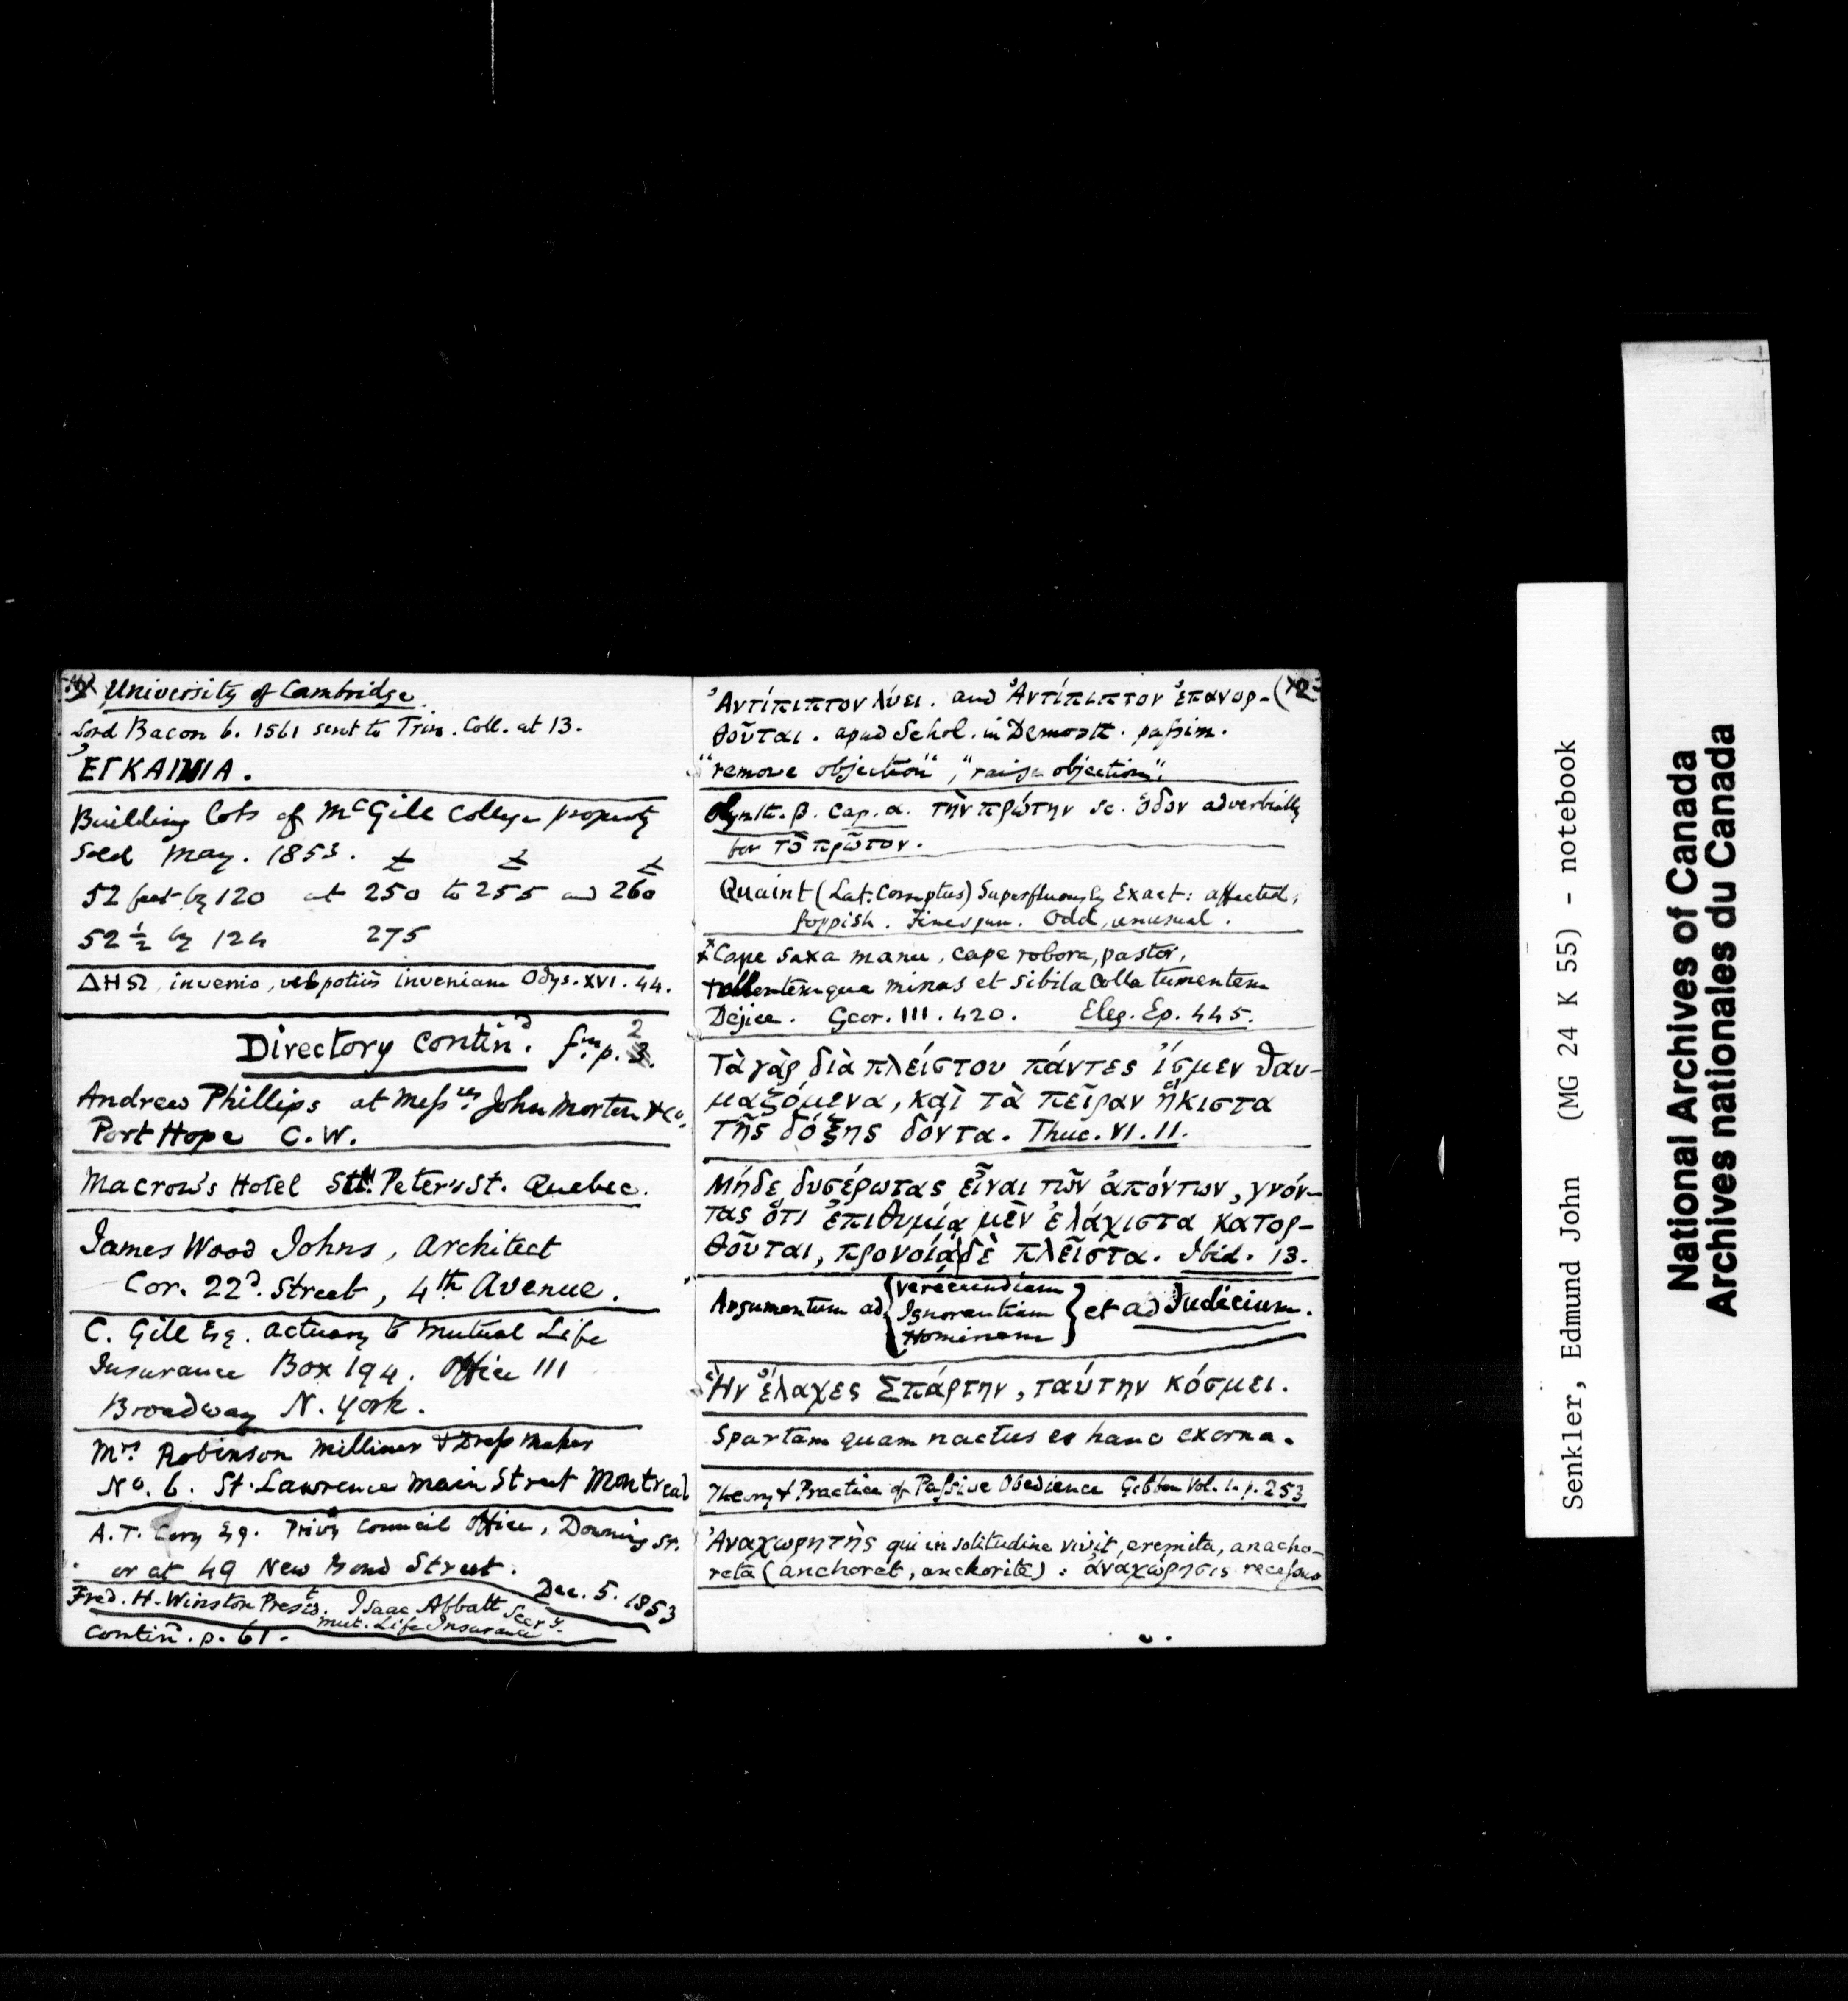 University of Cambridge.
Lord Bacon b. 1561 sent to Trin. Coll. at 13.
ἘΓΚΑΙΝΙΑ.
Building lots of McGill College property
sold May. 1853. £ £ £
52 feet by 120 at 250 to 255 and 260
52 ½ by 124 275
ΔΗΩ invenio, vel potius inveniam Odys. XVI. 44.
Directory contind. fm. p. 2
Andrew Phillips at Messrs John Morton & Co.
Port Hope C. W.
Macrow's Hotel St. Peter's St. Quebec.
James Wood Johns, Architect
Cor. 22d. Street, 4th Avenue.
C. Gill Esq. Actuary to Mutual Life
Insurance Box 194. Office 111
Broadway N. York.
Mrs Robinson Milliner & Dress Maker
No. 6. St. Lawrence Main Street Montreal
A. T. Cory Esq. Privy Council Office, Downing St.
or at 49 New Bond Street.
Dec. 5. 1853
Fred. H. Winston Presidt. Isaac Abbatt Secry.
Mut. Life Insurance
contin. p. 61.
Ἀντίπιπτον λύει. and Ἀντίπιπτον ἐπανορ- (12
θοῦται. apud Schol. in Demosth. passim.
"remove objection", "raise objection"
Olynth. β. Cap. α. τὴν πρώτην sc. ὁδον adverbially
for τὸ πρῶτον.
Quaint (Lat. Comptus) Superfluously Exact: affected,
foppish. Finespun. Odd, unusual.
x Cape saxa manu, cape robora, pastor,
tollentemque minas et sibila colla tumentem
Dejice. Geor. III. 420. Eleg. Ep. 445.
Τὰ γὰρ διὰ πλείστου πάντες ἴσμεν θαυ-
μαζόμενα, καὶ τὰ πεῖραν ἥκιστα
τῆς δόξης δόντα. Thuc. VI. 11.
Μήδε δυσέρωτας εἶναι τῶν ἀπόντων, γνόν-
τας ὅτι ἐπιθυμίᾳ μὲν ἐλάχιστα κατορ-
θοῦται, προνοίᾳ δὲ πλεῖστα. Ibid. 13.
Argumentum ad { Verecundiam
Ignorantiam
Hominem } et ad Judicium.
Ἣν ἔλαχες Σπάρτην, ταύτην κόσμει.
Spartam quam nactus es hanc exorna.
Theory & Practice of Passive Obedience Gibbon Vol. 1. p. 253
Ἀναχωρητὴς qui in solitudine vivit, eremita, anacho-
reta (anchoret, anchorite): ἀναχώρησις recessus
Senkler, Edmund John (MG 24 K 55) - notebook
National Archives of Canada
Archives nationales du Canada